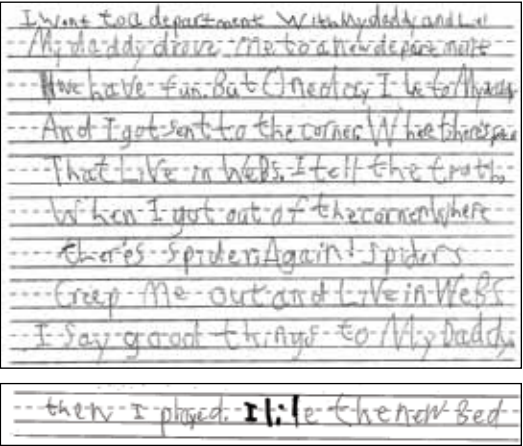 I went to a department With My daddy and
My daddy drove me to a new department
We have fun. But One day I lie to My
And I got sent to the corner. Where there's
That LiVe in WeBs. I tell the truth,
When I got out of the corner Where
there's spiders Again! spiders
Creep Me out and LiVe in WeBs
I say good things to My Daddy.
then I played. I like the new Bed